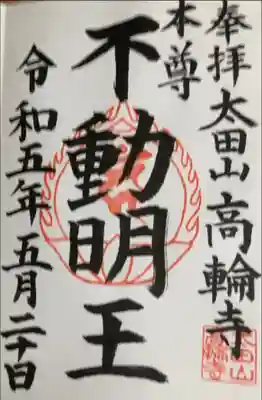 奉拝 太田山 高輪寺
本尊
不動明王
令和五年 五月二十日